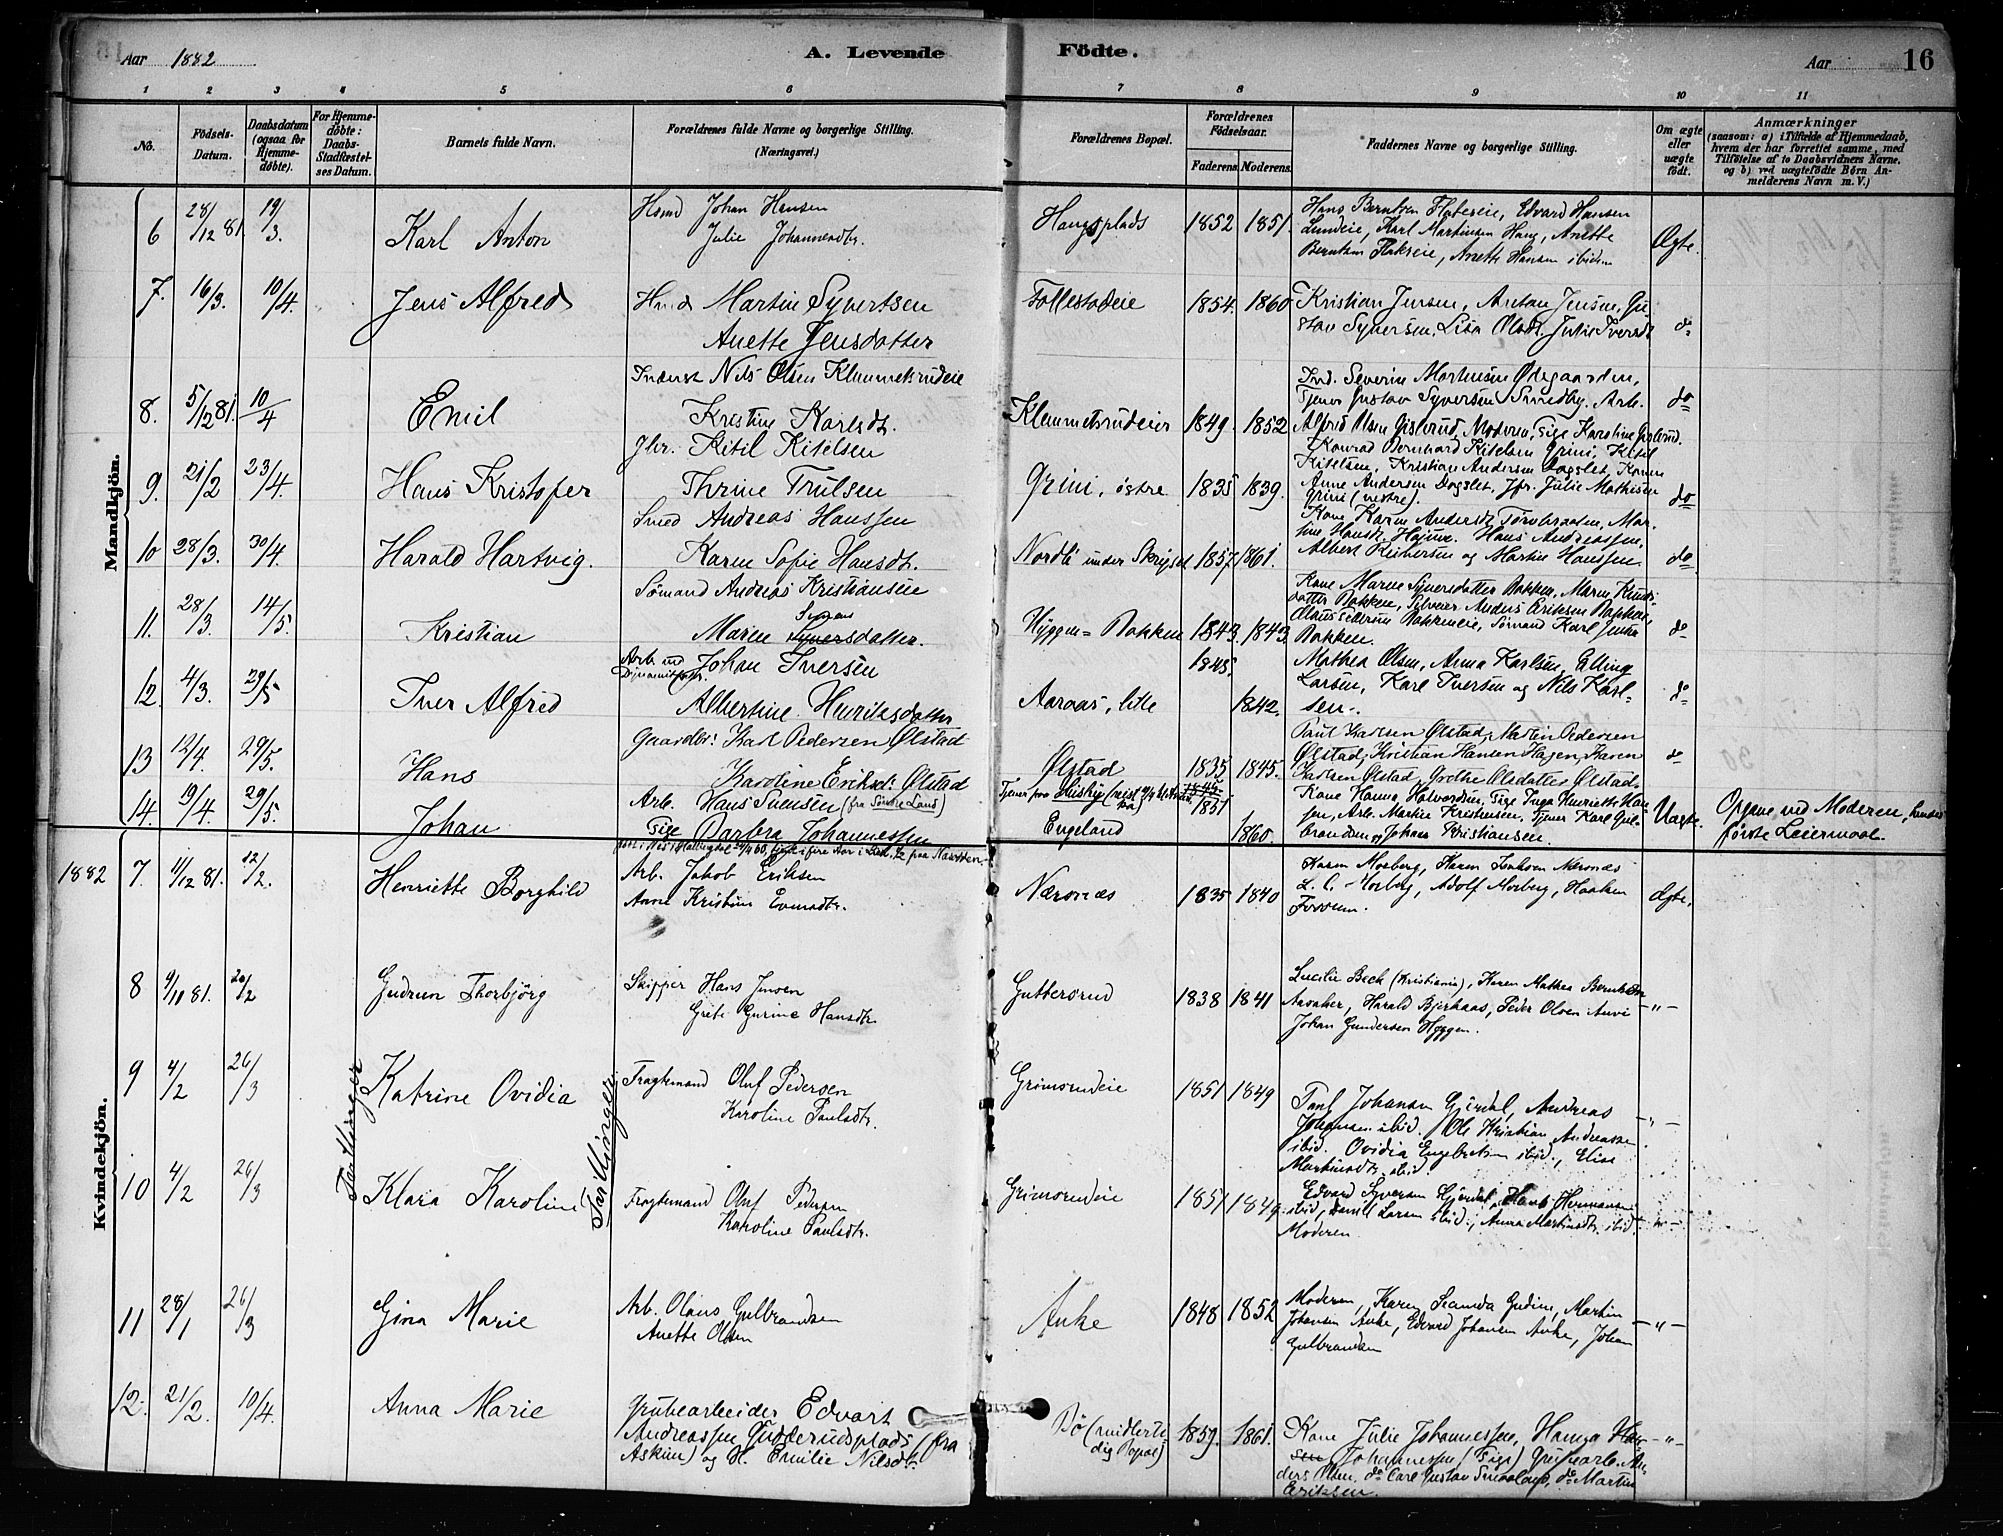 Aar 1882
A. Levende
Födte.
Aar
16
1 2 3 4 5 6 7 8 9 10 11
No.
Födsels-Datum.
Daabsdatum (ogsaa for Hjemmedøbte).
For Hjemmedøbte: Daabs-Stadfæstelses Datum.
Barnets fulde Navn.
Forældrenes fulde Navne og borgerlige Stilling.
(Næringsvei.)
Forældrenes Bopæl.
Forældrenes Födselsaar.
Faderens. Moderens.
Faddernes Navne og borgerlige Stilling.
Om ægte eller uægte födt.
Anmærkninger
(saasom: a) i Tilfælde af Hjemmedaab,
hvem der har forrettet samme, med
Tilföielse af to Daabsvidners Navne,
og b) ved uægtefödte Börn An-
melderens Navn m. V.)
Mandkjön.
6 28/12 81 19/3. Karl Anton
Johan Hansen
Julie Johannesdtr.
Haugsplads 1852 1851.
Hans Berntsen Flatereie, Edvard Hansen
Lundeie, Karl Martinsen Haug, Anette
Berntsen, Anette Hansen ibidem
Ægte.
7. 16/3. 10/4. Jens Alfred
Martin Syvertsen
Anette Jensdatter
Follestadeie 1854. 1860
Kristian Jensen, Anton Jensen, Gu
stav Syversen, Lisa Olsdtr. Julie Iversdt
do
8. 5/12 81. 10/4 Emil
Inderst Nils Olsen Klemmetsrudeie
Kristine Karlsdtr.
Klemmetsrudeier 1849. 1852
Ind. Severin Mortensen Ødegaarden,
Tjener Gustav Syversen Smedby, Arb.
Alfred Olsen Gislerud, Moderen, Pige Karoline Gislerud.
do
9. 21/2 23/4. Hans Kristofer
Kitil Kitelsen
Thrine Trulsen
Grini, østre 1835 1839.
Konrad Bernhard Kitelsen Grini, Kitil
Kitelsen, Kristian Andersen Dagslet, Kone
Anne Andersen Dagslet, Jfr. Julie Mathisen
Grini (vestre).
do
10 28/3. 30/4. Harald Hartvig.
Smed Andreas Hanssen
Karen Sofie Hansdt.
Nordli under 1857 1861.
Kone Karen Andersdt. Tørnbraaten, Mar-
tine Hansdt. Hans Andreassen,
Albert Reiersen og Martin Hanssen
do
11. 28/3. 14/5. Kristian
Sømand Andreas Kristiansen
Maren Syversdatter.
Hyggen=Bakken 1843. 1843.
Kone Maren Syversdatter Bakken, Maren Knuds-
datter Bakken, Selveier Anders Eriksen Bakken,
Bakkeneie, Sømand Karl Jensen
Bakken.
do
12. 4/3. 29/5 Iver Alfred
Arb. ved Dynamitfabr. Johan Iversen
Albertine Henriksdatter
Aaraas, lille 1845. 1842.
Mathea Olsen, Anna Karlsen, Elling
Larsen, Karl Iversen og Nils Karl-
sen.
do
13 12/4. 29/5. Hans
Gaardbr: Karl Pedersen Ølstad
Karoline Eriksd: Ølstad
Ølstad 1835 1845.
Paul Karlsen Ølstad, Martin Pedersen
Ølstad, Kristian Hansen Hagen, Karen
Karlsen Ølstad, Grethe Olsdatter Ølstad.
do
14. 19/4. 29/5. Johan
Arb. Hans Svensen (fra Søndre Land)
Pige Barbra Johannessen
Tjener paa
Engeland 1851 1860.
Kone Hanna Halvordsen, Pige Inga Henriette Han-
sen, Arb. Martin Kristensen, Tjener Karl Gul-
brandsen og Johan Kristiansen.
Uægte.
Opgave ved Moderen, hendes
første Leiermaal.
Kvindekjön.
1882 7. 11/12 81. 12/2. Henriette Borghild
Arb. Jakob Eriksen
Anne Kristine Evensdtr.
Nærsnæs 1835 1840
Karen Morberg, Nærsnæs
L. C. Morberg, Adolf Morberg, Haaken
Fossum.
Ægte.
8 9/11 81. 20/2 Gudrun Thorbjörg
Skipper Hans Jensen
Grete Gurine Hansdtr.
Guttersrud 1838 1841
Lucilie Bech (Kristiania), Karen Mathea
Aasaker, Harald Bjerkaas, Peder Olsen
Johan Gundersen Hyggen.
– " –
9 4/2 26/3 Katrine Ovidia
Tvillinger Tvillinger
Fragtemand Oluf Pedersen
Karoline Paulsdtr.
Grimsrudeie 1851 1849
Paul Johansen Gjerdal, Andreas
Johansen ibid. Ole Kristian Andreassen
ibid. Ovidia Engebretsen ibid., Elise
Martinsdtr. ibid.
– " –
10 4/2 26/3 Klara Karoline
Fragtemand Oluf Pedersen
Karoline Paulsdtr.
Grimsrudeie 1851 1849
Edvard Syversen Gjerdal, Hermansen
ibid, Larsen ibid., Anna Martinsdtr. ibid.
Moderen.
– " –
11 28/1 26/3 Gina Marie
Arb. Olaus Gulbrandsen
Anette Olsen
Auke 1848 1852
Moderen, Karen Gudine, Martin
Johansen Auke, Edvard Johansen Auke, Johan
Gulbrandsen
– " –
12. 21/2. 10/4. Anna Marie
Grubearbeider Edvart
Andreassen Gudderudsplads (fra
Askim) og H. Emilie Nilsdt.
Bø (midlerti-
dig Bopæl) 1859. 1861.
Kone Julie Johannessen, Hanna
Johannessen (Pige) Grubearb. An-
ders Olsen, do Carl Gustav do Martin
Eriksen.
– " –